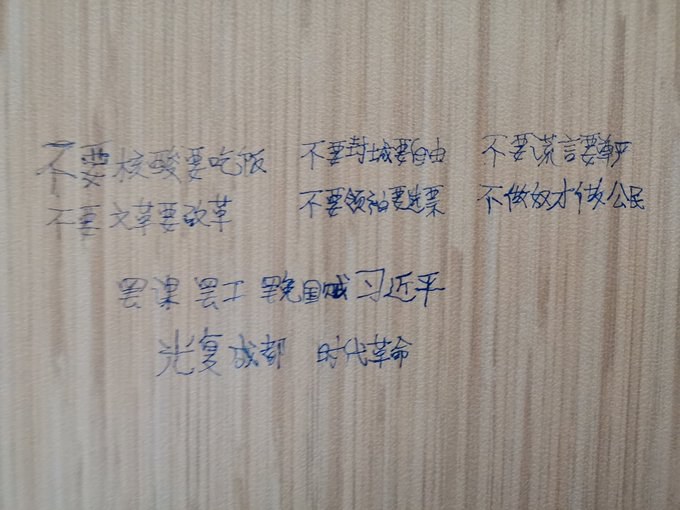 不要核酸要吃饭 不要封城要自由 不要谎言要尊严
不要文革要改革 不要领袖要选票 不做奴才做公民
罢课 罢工 罢免国贼习近平
光复成都 时代革命